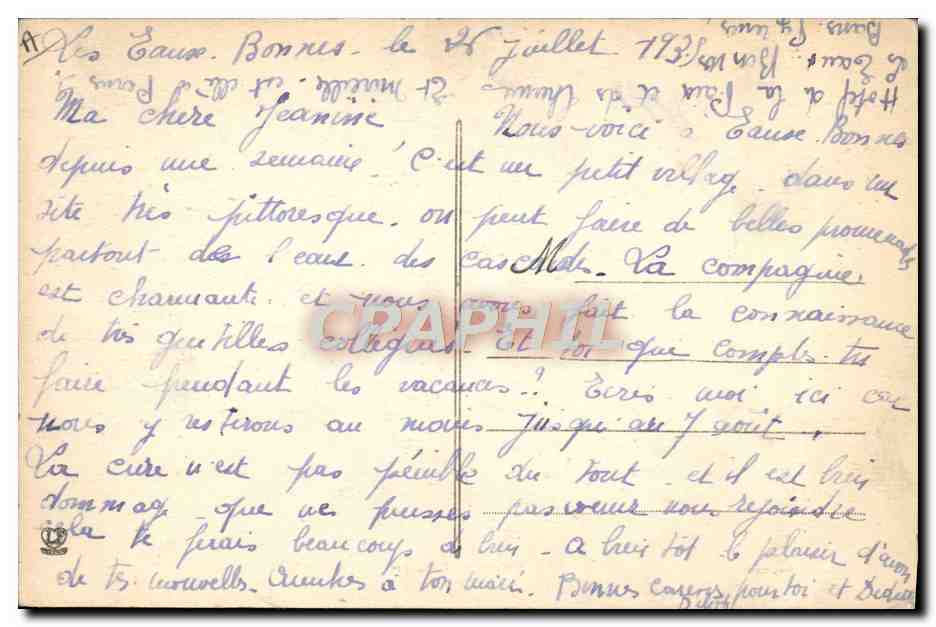 A
Les Eaux-Bonnes - le 26 juillet 193
Hotel de la Paix et des Thermes
Les Eaux Bonnes
Basses Pyrénées
Et Mireille est elle à Paris
Ma chère Jeanine Nous voici à Eaux-Bonnes
depuis une semaine ! C'est un petit village dans un
site très pittoresque. on peut faire de belles promenades
partout de l'eau des cascades. La compagnie
est charmante et nous avons fait la connaissance
de très gentilles collègues. Et toi que comptes-tu
faire pendant les vacances ? Ecris moi ici car
nous y resterons au moins jusqu'au 7 août.
La cure n'est pas pénible du tout et il est bien
dommage que ne puisses pas venir nous rejoindre
cela te ferais beaucoup de bien - A bientot le plaisir d'avoir
de tes nouvelles. Amitiés à ton mari. Bonnes caresses pour toi et
CRAPHIL